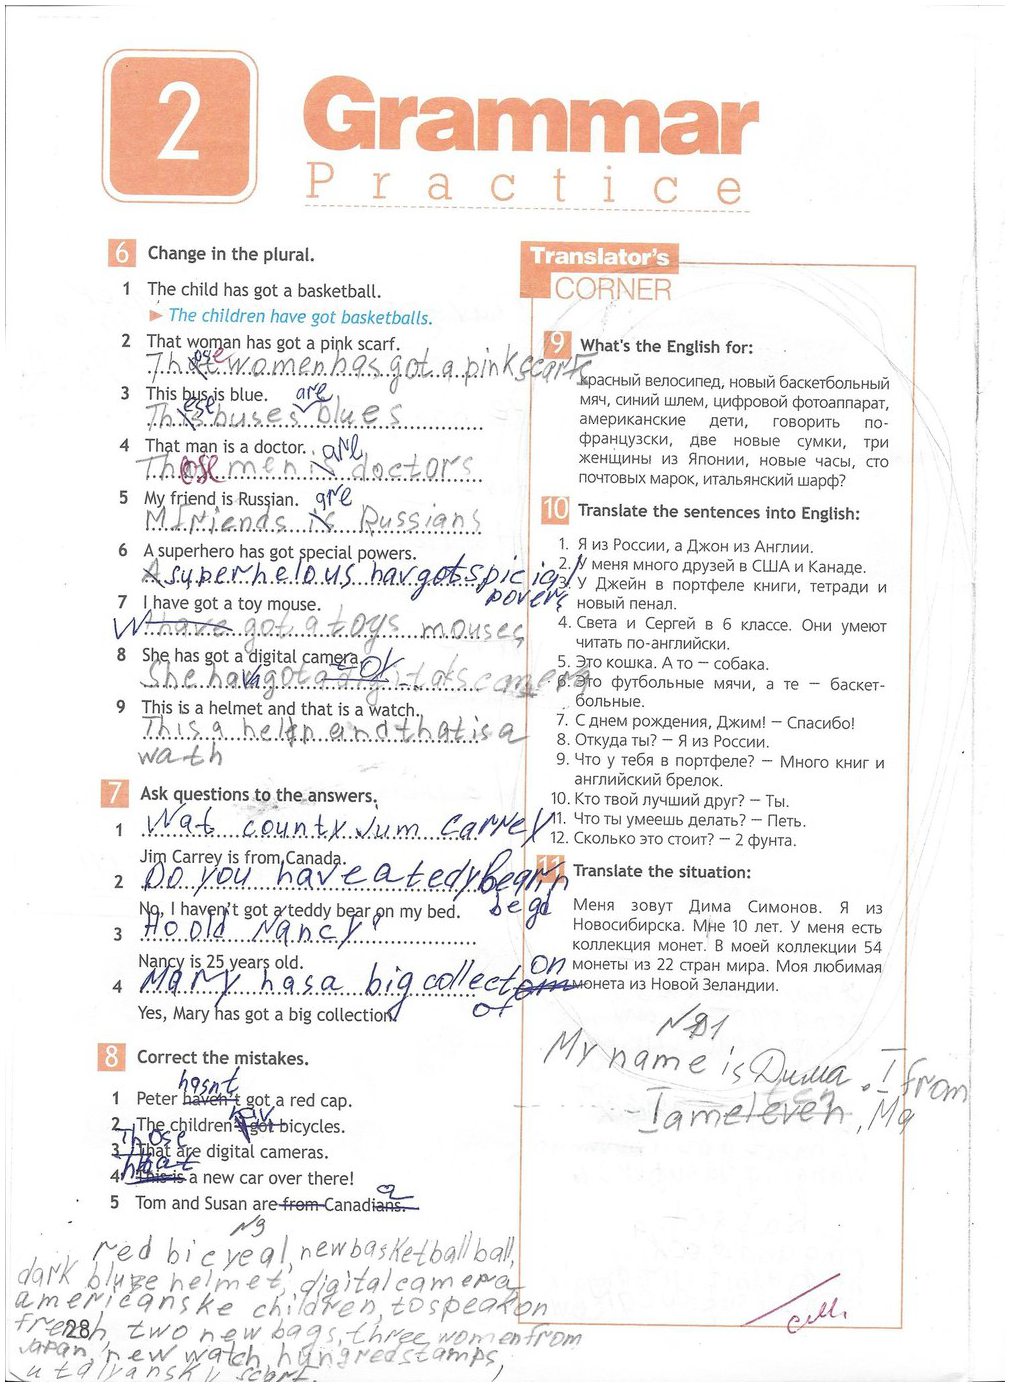 2
Grammar
Practice
6 Change in the plural.
1 The child has got a basketball.
► The children have got basketballs.
2 That woman has got a pink scarf.
women has got a pink scarfs
3 This bus is blue. are
buses blues
4 That man is a doctor. are
Those men is doctors
5 My friend is Russian. are
friends is Russians
6 A superhero has got special powers.
superhelous hav got spicial
povers
7 I have got a toy mouse.
have got a toys mouses
8 She has got a digital camera.
She got
9 This is a helmet and that is a watch.
This a and that is a
wath
7 Ask questions to the answers.
1 Wat county Jum Carrey
Jim Carrey is from Canada.
2 Do you have a tedy
No, I haven't got a teddy bear on my bed.
3 Ho old Nancy
Nancy is 25 years old.
4 Mary has a big collect on
of
Yes, Mary has got a big collection.
8 Correct the mistakes.
hasnt
1 Peter haven't got a red cap.
hav
2 The children's got bicycles.
Those
3 That are digital cameras.
4 This is a new car over there!
a
5 Tom and Susan are from Canadians.
N9
red bicycal, new basketball ball,
dark helmet, digital camera
americanske children, to speak on
french, two new bags, three women from
Japan, new watch, hungred stamps,
utalyansky scarf.
28
Translator's
CORNER
9 What's the English for:
красный велосипед, новый баскетбольный
мяч, синий шлем, цифровой фотоаппарат,
американские дети, говорить по-
французски, две новые сумки, три
женщины из Японии, новые часы, сто
почтовых марок, итальянский шарф?
10 Translate the sentences into English:
1. Я из России, а Джон из Англии.
2. У меня много друзей в США и Канаде.
3. У Джейн в портфеле книги, тетради и
новый пенал.
4. Света и Сергей в 6 классе. Они умеют
читать по-английски.
5. Это кошка. А то – собака.
6. Это футбольные мячи, а те – баскет-
больные.
7. С днем рождения, Джим! – Спасибо!
8. Откуда ты? – Я из России.
9. Что у тебя в портфеле? – Много книг и
английский брелок.
10. Кто твой лучший друг? – Ты.
11. Что ты умеешь делать? – Петь.
12. Сколько это стоит? – 2 фунта.
11 Translate the situation:
Меня зовут Дима Симонов. Я из
Новосибирска. Мне 10 лет. У меня есть
коллекция монет. В моей коллекции 54
монеты из 22 стран мира. Моя любимая
монета из Новой Зеландии.
My name is Дима. I from
I am eleven, Ma